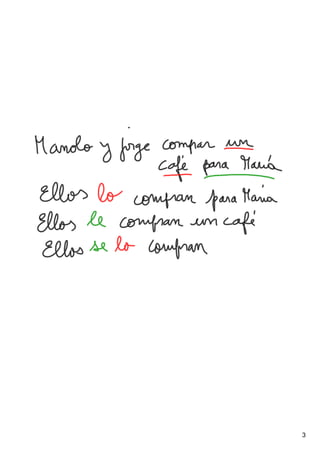 Manolo y Jorge compran un
café para María
Ellos lo compran para María
Ellos le compran un café
Ellos se lo compran
3